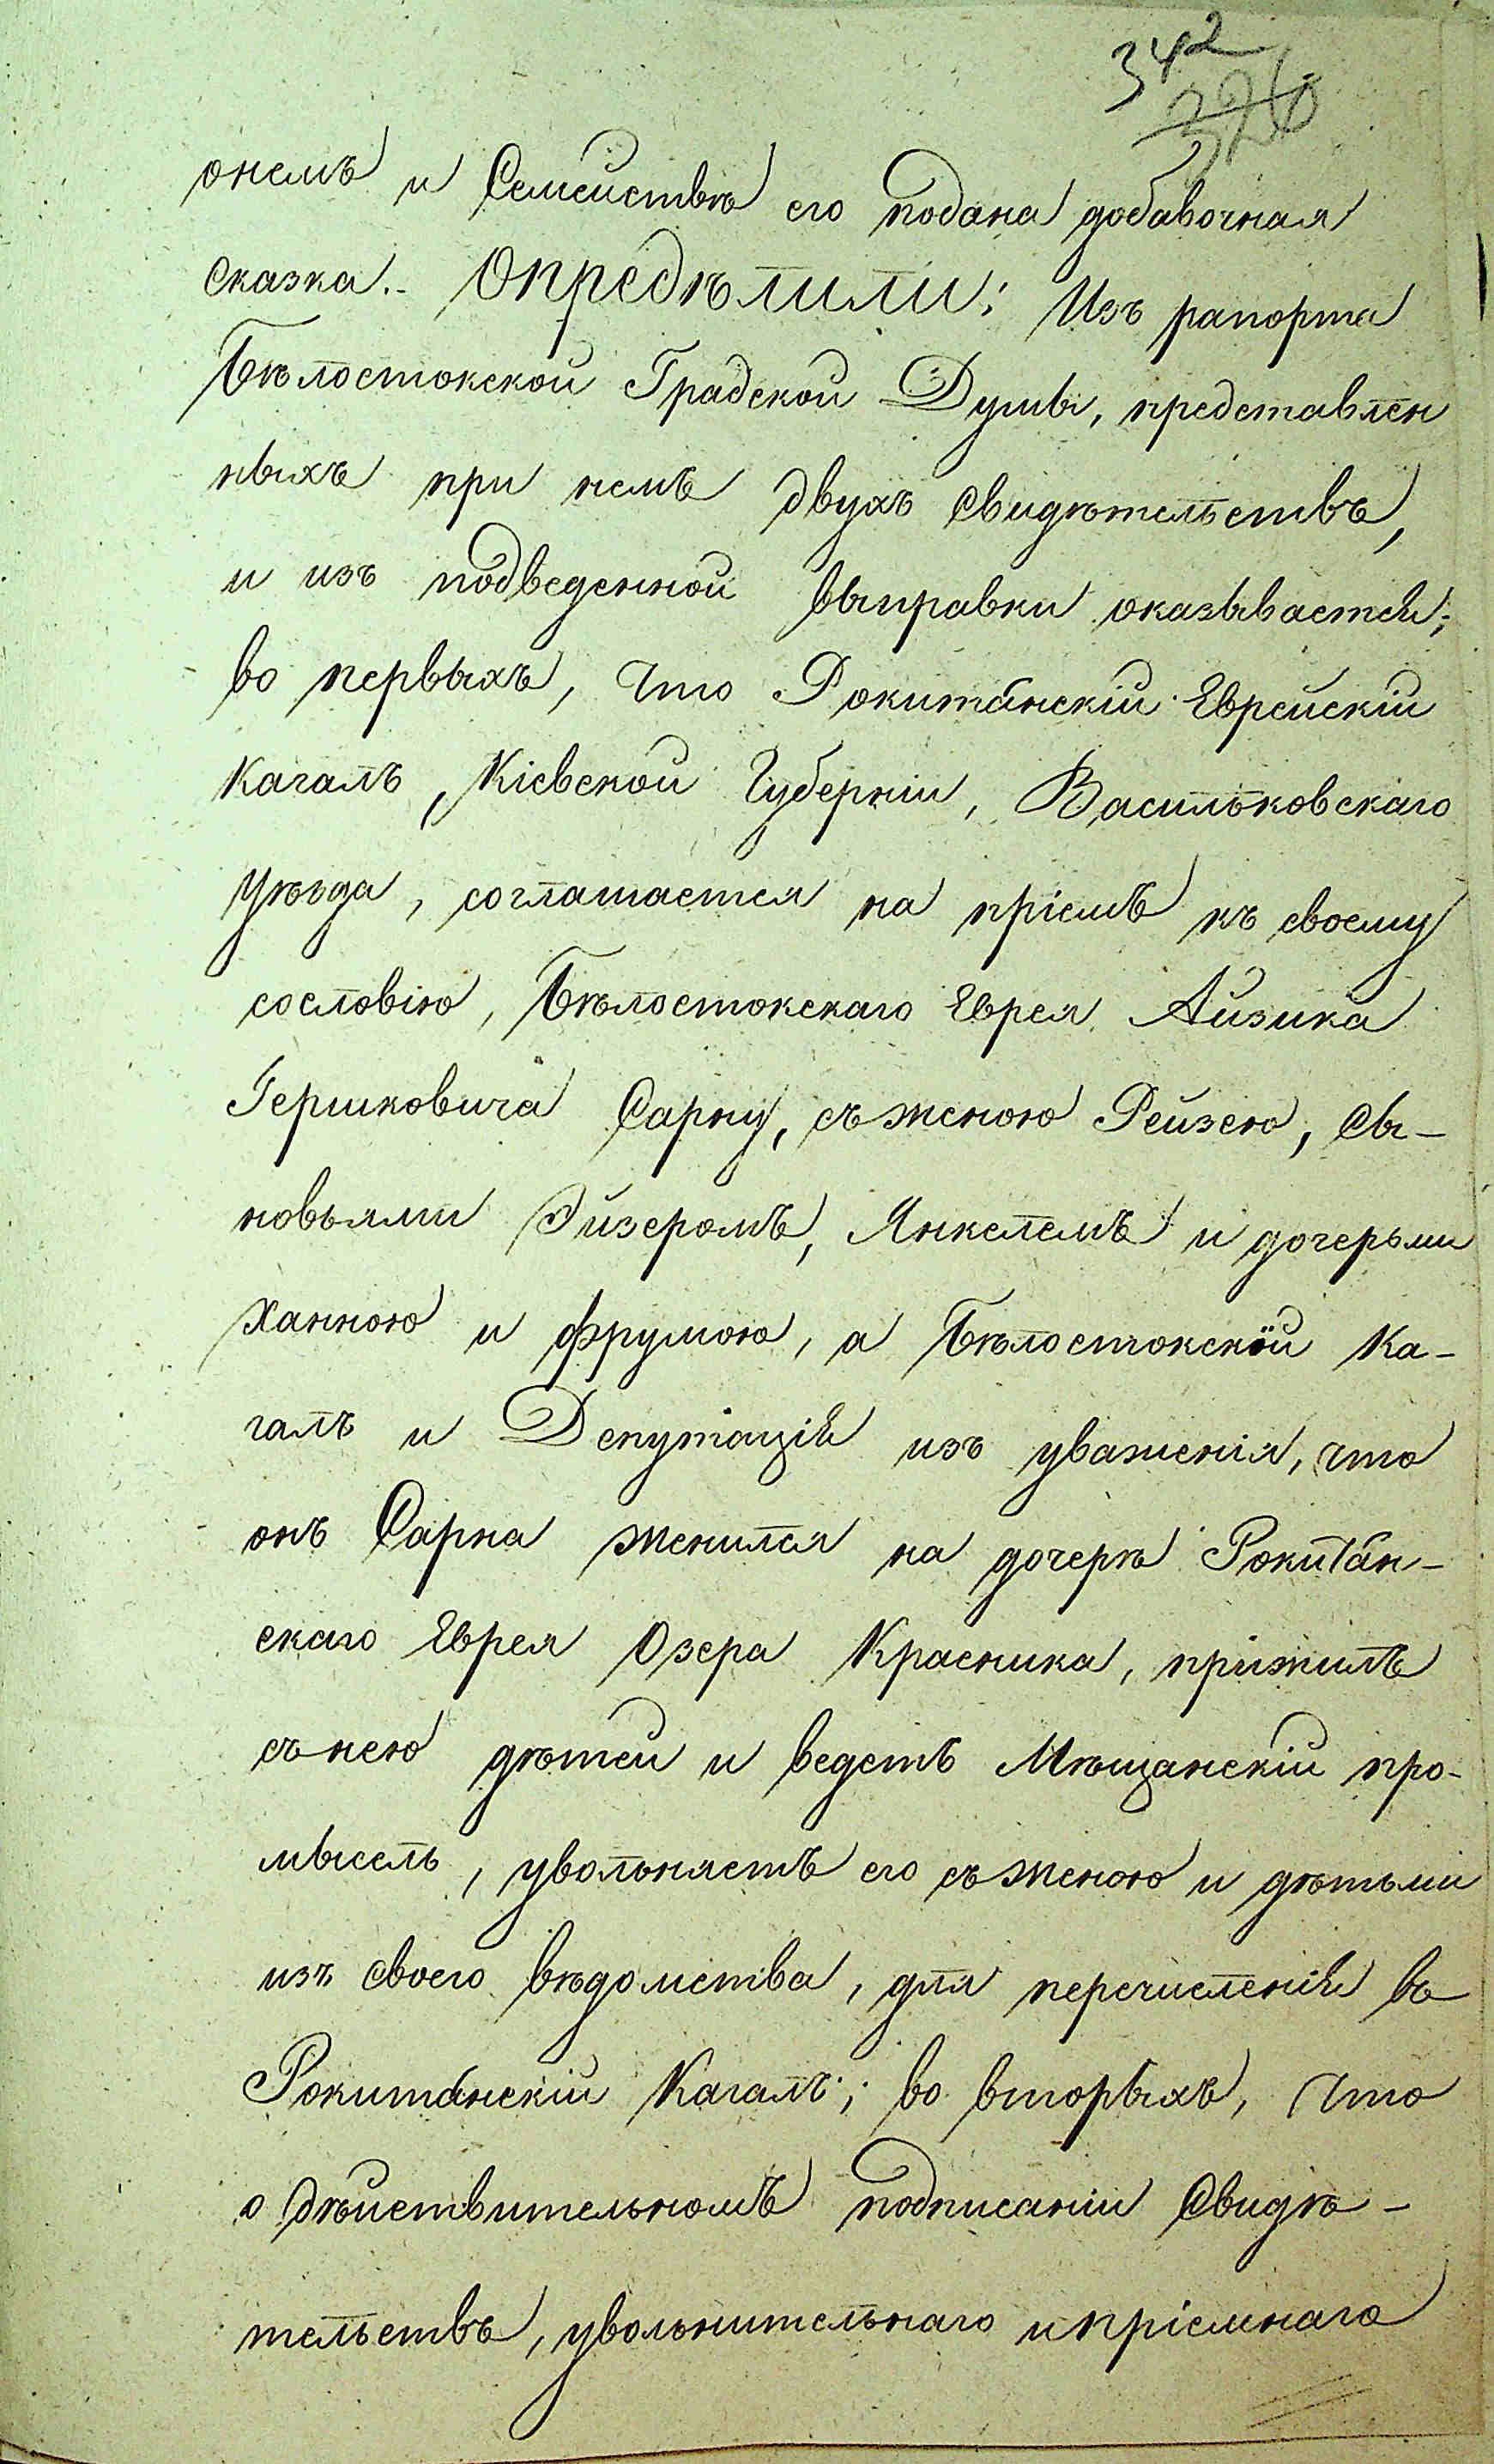 342
326
онемъ и Семействѣ его подана добавочная
сказка.- Опредѣлили: Изъ рапорта
Бѣлостокской Градской Думы, представлен
ныхъ при немъ двухъ свидѣтельствъ,
и изъ подведенной выправки оказывается;
во первыхъ, что Рокитáнскій Еврейскій
Кагалъ, Кіевской Губерніи, Васильковскаго
уѣзда, соглашается на пріемъ къ своему
сословію, Бѣлостокскаго Еврея Айзика
Гершковича Сарну, съ женою Рейзею, сы-
новьями Эйзеромъ, Янкелемъ и дочерьми
Ханною и Фрумою, а Бѣлостокскій Ка-
галъ и Депутація изъ уваженія, что
онъ Сарна женился на дочерѣ Рокитáн-
скаго Еврея Озера Красника, прижилъ
съ нею дѣтей и ведетъ Мѣщанскій про-
мыселъ, увольняетъ его съ женою и дѣтьми
изъ своего вѣдомства, для перечисленія въ
Рокитáнскій Кагалъ; во вторыхъ, что
о дѣйствительномъ подписаніи Свидѣ-
тельствъ, увольнительнаго и пріемнаго